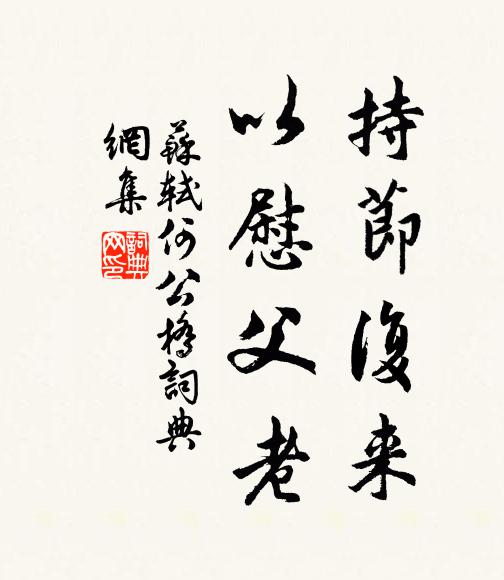 持節復来
以慰父老
蘇軾何公橋詞典
網集
詞典网印